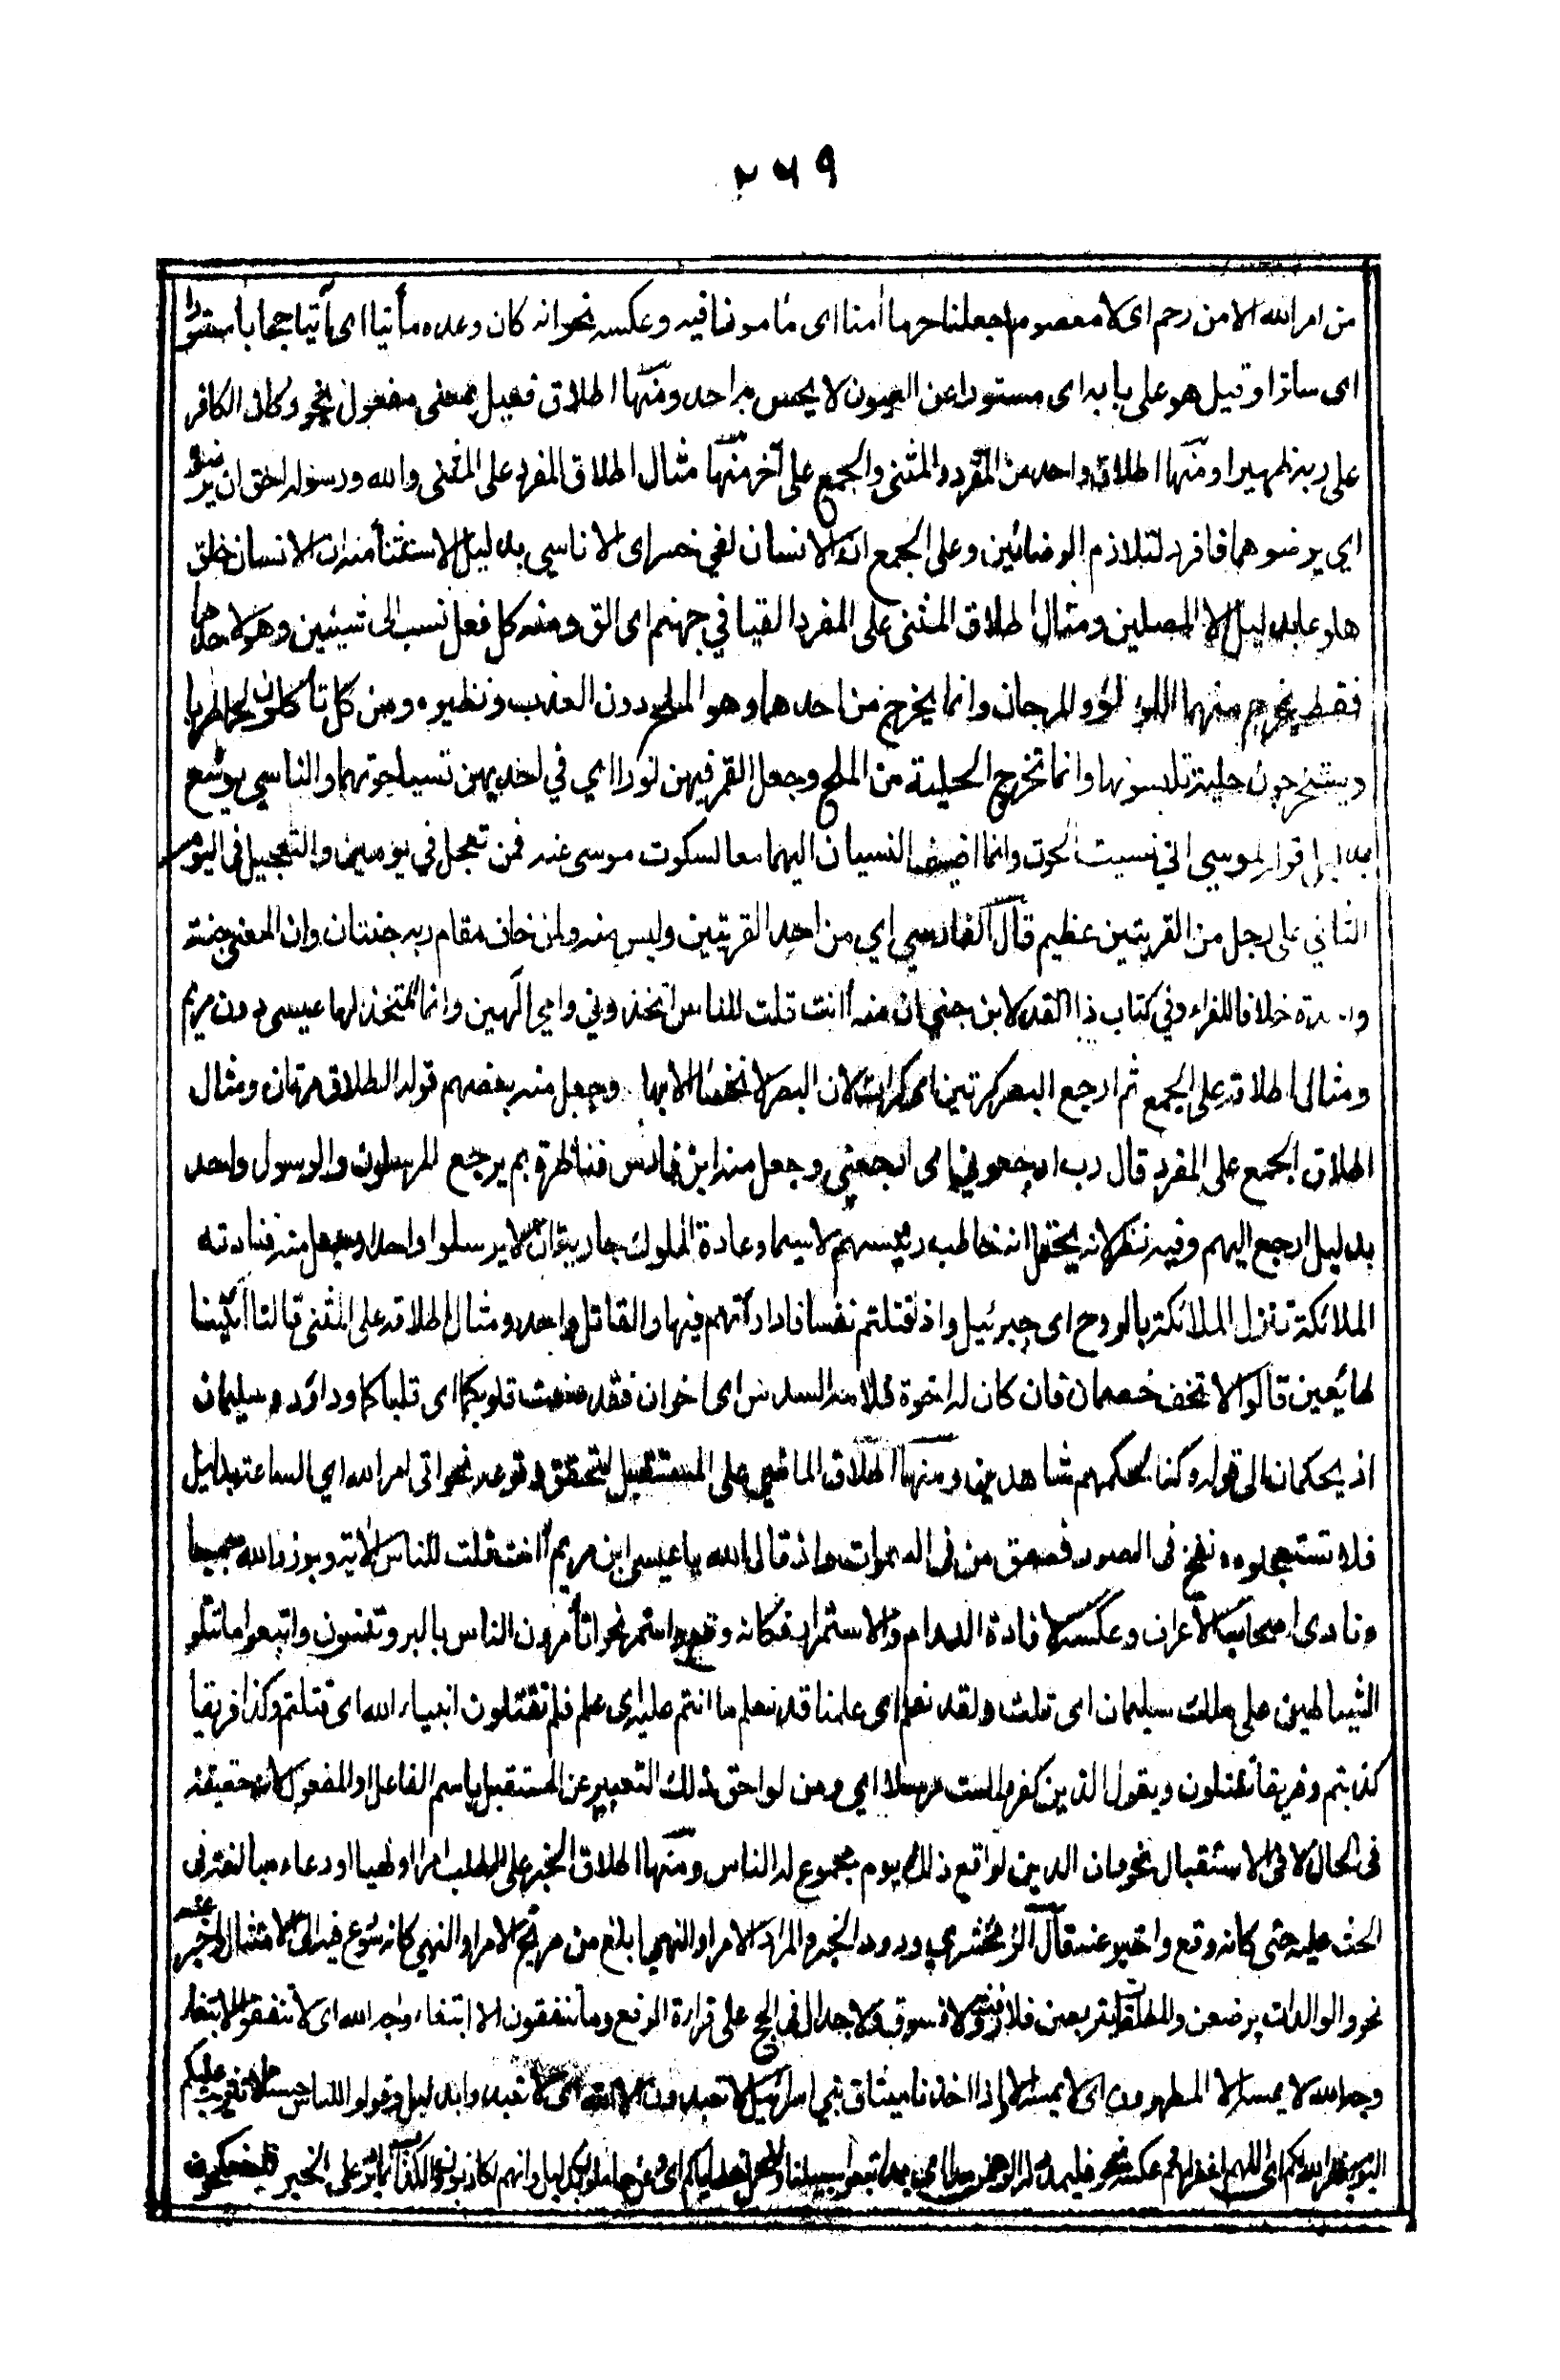 ٢٦٩
من امر الله الا من رحم اى لا معصوم جعلنا حرما أمنا اى مأمونا فيه وعكسه نحو انه كان وعده مأتيا اى آتيا حجابا مستورا
اى ساترا وقيل هو على بابه اى مستورا عن العيون لا يحس به احد ومنها اطلاق فعيل بمعنى مفعول نحو وكان الكافر
على ربه ظهيرا ومنها اطلاق واحد من المفرد والمثنى والجمع على آخر منها مثال اطلاق المفرد على المثنى والله ورسوله احق ان يرضوه
اي يرضوهما فافرد لتلازم الرضائين وعلى الجمع ان الانسان لفي خسر اى الاناسي بدليل الاستثناء منه ان الانسان خلق
هلوعا بدليل الا المصلين ومثال اطلاق المثنى على المفرد القيا في جهنم اى الق ومنه كل فعل نسب الى شيئين وهو لاحدهما
فقط يخرج منهما اللؤلؤ والمرجان وانما يخرج من احدهما وهو الملح دون العذب ونظيره ومن كل تأكلون لحما طريا
وتستخرجون حلية تلبسونها وانما تخرج الحلية من الملح وجعل القمر فيهن نورا اي في احديهن نسيا حوتهما والناسي يوشع
بدليل قوله لموسى اني نسيت الحوت وانما اضيف النسيان اليهما معا لسكوت موسى عنه فمن تعجل في يومين والتعجيل فى اليوم
الثاني على رجل من القريتين عظيم قال الفارسي اي من احد القريتين وليس منه ولمن خاف مقام ربه جنتان وان المعنى جنة
واحدة خلافا للفراء وفي كتاب ذا القد لابن جني ان منه أانت قلت للناس اتخذوني وامي الهين وانما المتخذ الها عيسى دون مريم
ومثال اطلاقه على الجمع ثم ارجع البصر كرتين اى كرات لان البصر لا يحسر الا بها وجعل منه بعضهم قوله الطلاق مرتان ومثال
اطلاق الجمع على المفرد قال رب ارجعوني اى ارجعني وجعل منه ابن فارس فناظرة بم يرجع المرسلون والرسول واحد
بدليل ارجع اليهم وفيه نظر لانه يحتمل انه خاطب رئيسهم لا سيما وعادة الملوك جارية ان لا يرسلوا واحدا وجعل منه فنادته
الملائكة تنزل الملائكة بالروح اى جبرئيل واذ قتلتم نفسا فادارأتم فيها والقاتل واحد ومثال اطلاقه على المثنى قالتا أتينا
طائعين قالوا لا تخف خصمان فان كان له اخوة فلامه السدس اى اخوان فقد صغت قلوبكما اى قلباكما وداؤد وسليمان
اذ يحكمان الى قوله وكنا لحكمهم شاهدين ومنها اطلاق الماضي على المستقبل لتحقق وقوعه نحو اتى امر الله اي الساعة بدليل
فلا تستعجلوه ونفخ فى الصور فصعق من فى السموات واذ قال الله يا عيسى ابن مريم أانت قلت للناس الاية وبرزوا لله جميعا
ونادى اصحاب الاعراف وعكسه لافادة الدوام والاستمرار فكانه وقع واستمر نحو اتأمرون الناس بالبر وتنسون واتبعوا ما تتلو
الشياطين على ملك سليمان اى تلت ولقد نعلم اى علمنا قد يعلم ما انتم عليه اى علم فلم تقتلون انبياء الله اى قتلتم وكذا فريقا
كذبتم وفريقا تقتلون ويقول الذين كفروا لست مرسلا اي ومن لواحق ذلك التعبير عن المستقبل باسم الفاعل او المفعول لانه حقيقة
فى الحال لا فى الاستقبال نحو وان الدين لواقع ذلك يوم مجموع له الناس ومنها اطلاق الخبر على الطلب امرا او نهيا او دعاء مبالغة فى
الحث عليه حتى كانه وقع واخبر عنه قال الزمخشري ورود الخبر والمراد الامر او النهي ابلغ من صريح الامر او النهي كانه سورع فيه الى الامتثال واخبر عنه
نحو والوالدات يرضعن والمطلقات يتربصن فلا رفث ولا فسوق ولا جدال فى الحج على قراءة الرفع وما تنفقون الا ابتغاء وجه الله اى لا تنفقوا الا ابتغاء
وجه الله لا يمسه الا المطهرون اى لا يمسسه واذ اخذنا ميثاق بني اسرائيل لا تعبدون الا الله اى لا تعبدوا بدليل وقولوا للناس حسنا لا تثريب عليكم
اليوم يغفر الله لكم اى اللهم اغفر لهم عكسه نحو فليمدد له الرحمن مدا اى يمد اتبعوا سبيلنا ولنحمل خطاياكم اى ونحن حاملون بدليل وانهم لكاذبون والكذب انما يرد على الخبر فليضحكوا